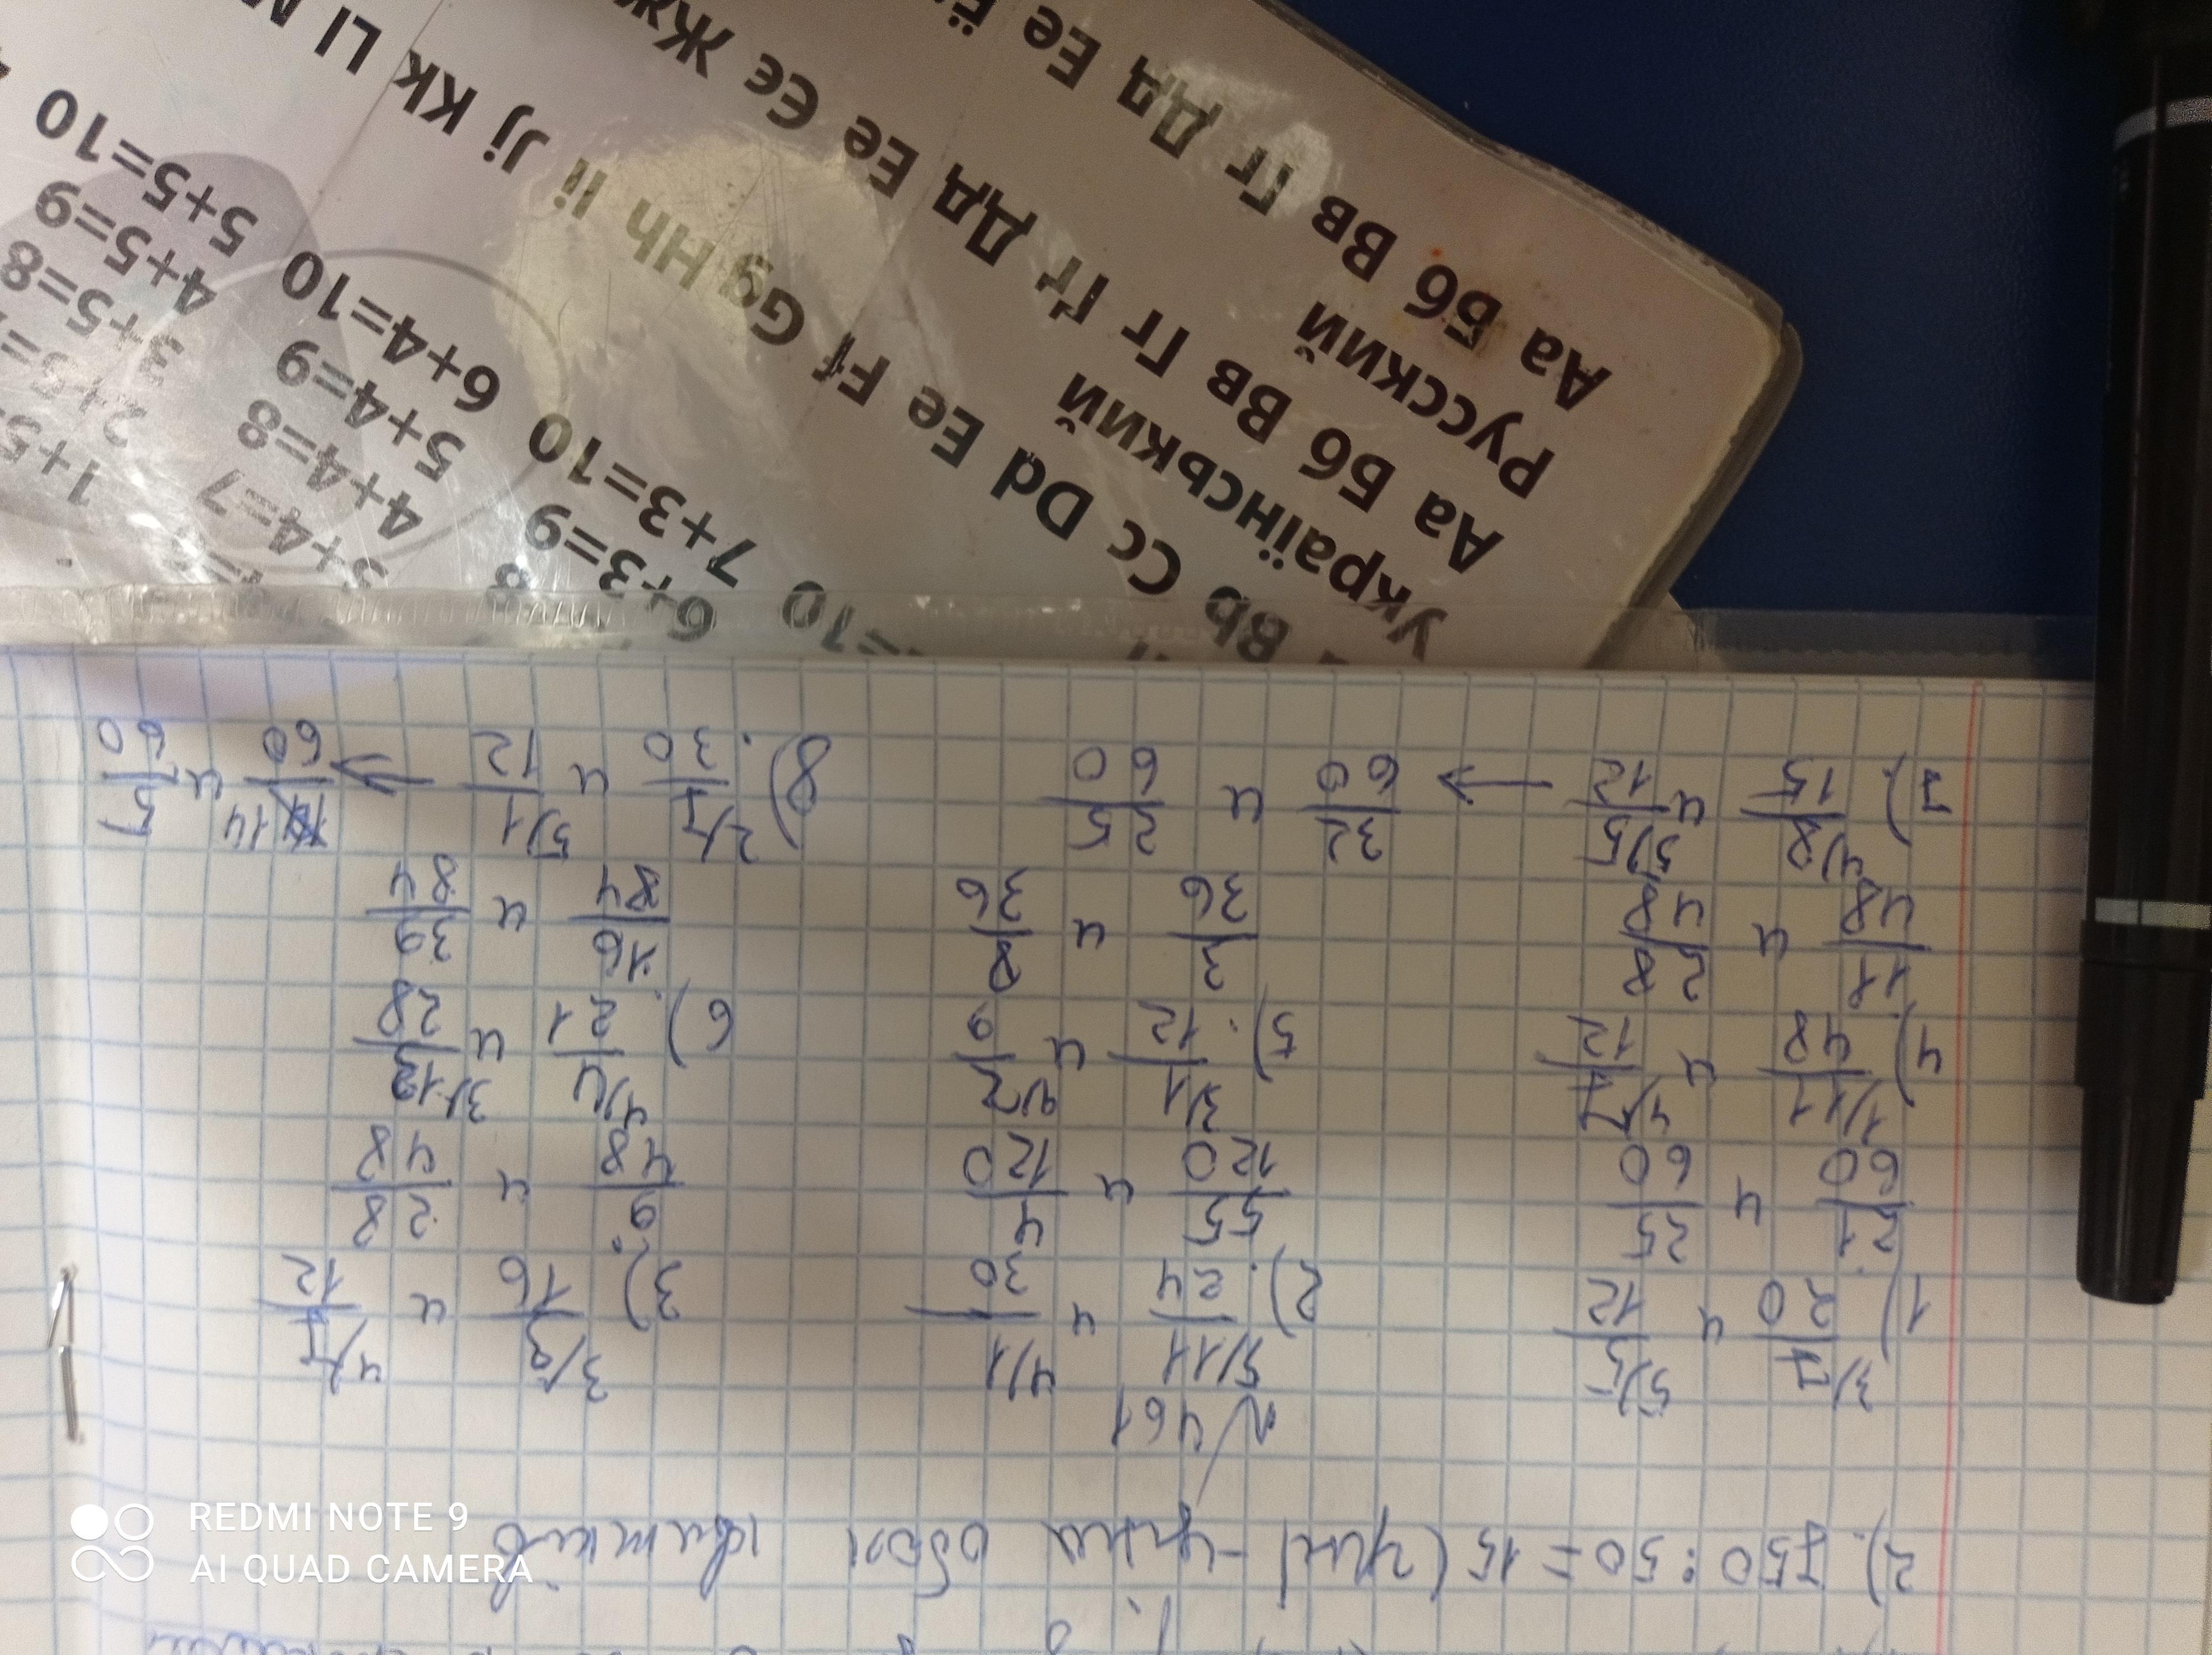 2) 750 : 50 = 15 (грн) - ціна обох квитків
№ 461
1) 3/7/20 и 5/5/12 2) 5/11/24 и 4/1/30 3) 3/3/16 и 4/7/12
21/60 и 25/60 55/120 и 4/120 9/48 и 28/48
4) 1/11/48 и 4/7/12 5) 3/1/12 и 4/2/9 6) 4/4/21 и 3/13/28
11/48 и 28/48 3/36 и 8/36 16/84 и 39/84
7) 4/8/15 и 5/5/12 → 32/60 и 25/60 8) 2/7/30 и 5/1/12 ⇒ 14/60 и 5/60
=10
6+3=9
7+3=10
3+4=7
4+4=8
5+4=9
6+4=10
1+5
2+5=
3+5=8
4+5=9
5+5=10
Bb Cc Dd Ee Ff Gg Hh Ii Jj Kk Ll M
Український
Аа Бб Вв Гг Ґґ Дд Ее Єє Жж
Русский
Аа Бб Вв Гг Дд Ее Ё
REDMI NOTE 9
AI QUAD CAMERA